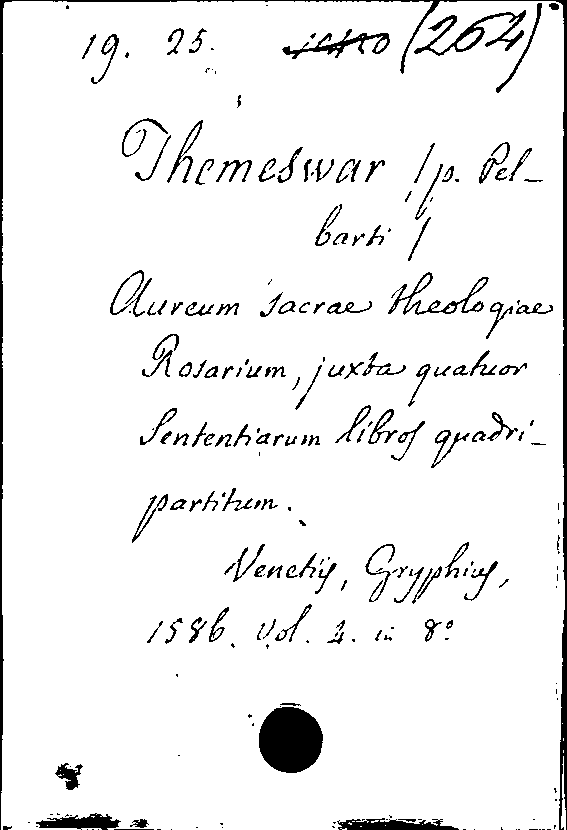 19. 25. (264)
Themeswar /p. Pel-
barti /
Aureum sacrae theologiae
Rosarium, juxta quatuor
Sententiarum libros quadri-
partitum.
Venetiis, Gryphius,
1586. Vol. 4. in 8º